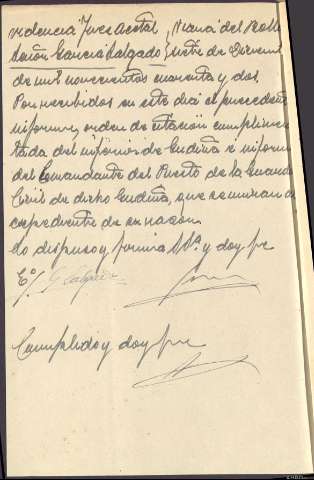 Providencia Juez acctal } Viana del Bollo
Señor García Salgado } siete de Diciembre
de mil novecientos cuarenta y dos.
Por recibidos en este dia el precedente
informe, orden de citación cumplimen-
tada del inferior de Gudiña e informe
del Comandante del Puesto de la Guardia
Civil de dicho Gudiña, que se uniran al
expediente de su razon.
Lo dispuso y firma S.Sª. y doy fe
E/. G Salgado
Cumplido y doy fe